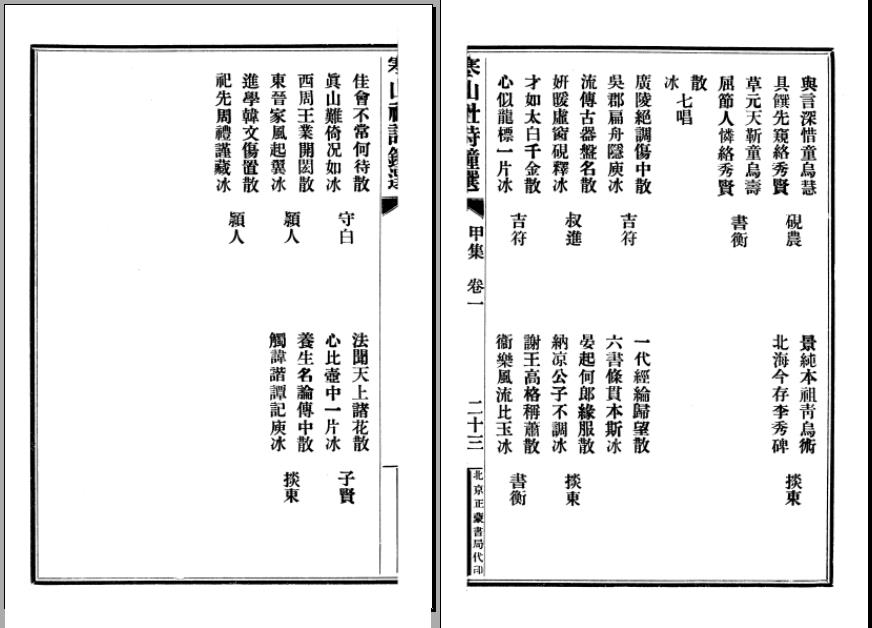 與言深惜童烏慧
景純本祖青烏術
具饌先窺絡秀賢
硯農
北海今存李秀碑
掞東
草元天靳童烏壽
屈節人憐絡秀賢
書衡
散
冰
七唱
廣陵絕調傷中散
一代經綸歸望散
吳郡扁舟隱庾冰
吉符
六書條貫本斯冰
流傳古器盤名散
晏起何郎緣服散
妍暖虛窗硯釋冰
叔進
納凉公子不調冰
掞東
才如太白千金散
謝王高格稱蕭散
心似龍標一片冰
吉符
衞樂風流比玉冰
書衡
寒山社詩鐘選
甲集
卷一
二十三
北京正蒙書局代印
寒山社詩鐘選
佳會不常何待散
法聞天上諸花散
眞山難倚况如冰
守白
心比壺中一片冰
子賢
西周王業開閎散
養生名論傳中散
東晉家風起翼冰
頴人
觸諱諧譚記庾冰
掞東
進學韓文傷置散
祀先周禮謹藏冰
頴人